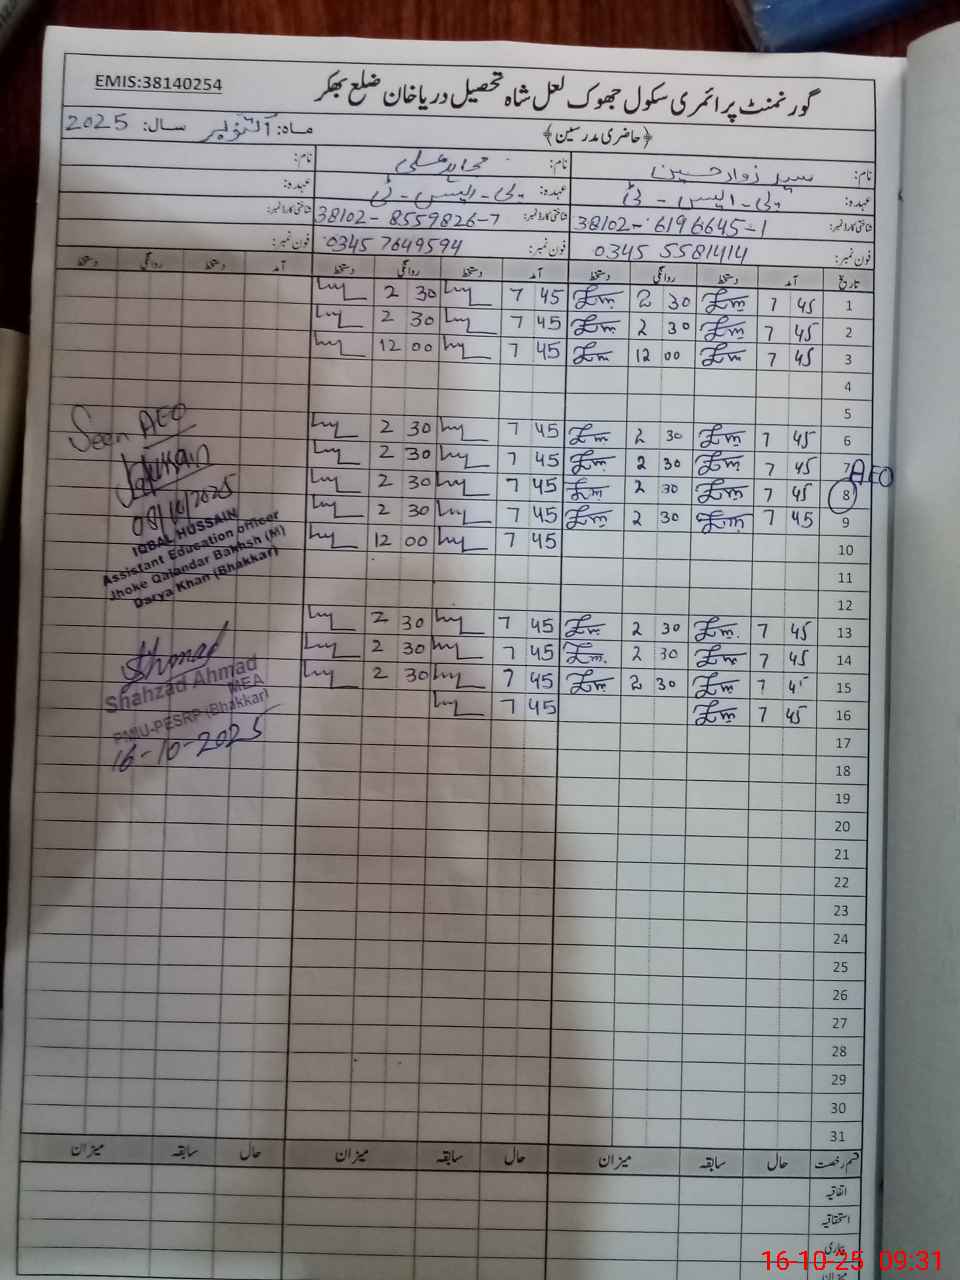 EMIS:38140254
گورنمنٹ پرائمری سکول جھوک لعل شاہ تحصیل دریاخان ضلع بھکر
﴿حاضری مدرسین﴾ ماہ: اکتوبر سال: 2025
نام: سید زوار حسین نام: مجاہد علی نام:
عہدہ: پی-ایس-ٹی عہدہ: پی-ایس-ٹی عہدہ:
شناختی کارڈ نمبر: 38102-6196645-1 شناختی کارڈ نمبر: 38102-8559826-7 شناختی کارڈ نمبر:
فون نمبر: 0345 5581414 فون نمبر: 0345 7649594 فون نمبر:
تاریخ آمد دستخط روانگی دستخط آمد دستخط روانگی دستخط آمد دستخط روانگی دستخط
1 7 45 2 30 7 45 2 30
2 7 45 2 30 7 45 2 30
3 7 45 12 00 7 45 12 00
4
5
6 7 45 2 30 7 45 2 30
7 7 45 2 30 7 45 2 30
AEO
8 7 45 2 30 7 45 2 30
9 7 45 2 30 7 45 2 30
10 7 45 12 00
11
12
13 7 45 2 30 7 45 2 30
14 7 45 2 30 7 45 2 30
15 7 45 2 30 7 45 2 30
16 7 45 7 45
17
18
19
20
21
22
23
24
25
26
27
28
29
30
31
Seen AEO
08/10/2025
IQBAL HUSSAIN
Assistant Education officer
Jhoke Qalandar Bakhsh (M)
Darya Khan (Bhakkar)
Ahmad
Shahzad Ahmad
MEA
PMIU-PESRP (Bhakkar)
16-10-2025
قسم رخصت حال سابقہ میزان حال سابقہ میزان حال سابقہ میزان
اتفاقیہ
استحقاقیہ
بیماری
میزان
16-10-25 09:31